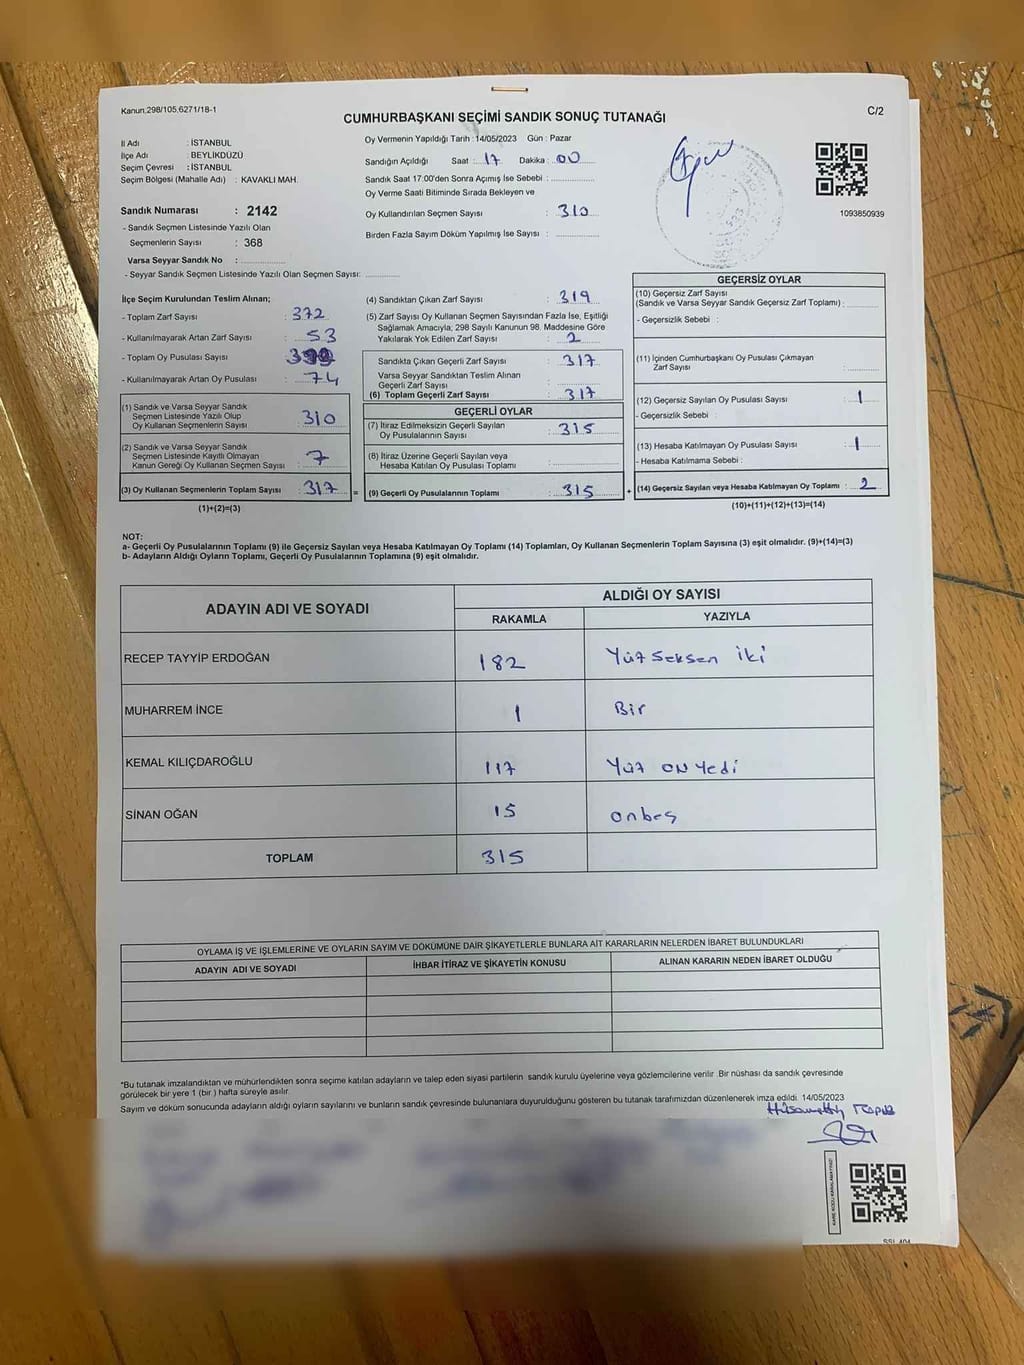 Kanun,298/105,6271/18-1
C/2
CUMHURBAŞKANI SEÇİMİ SANDIK SONUÇ TUTANAĞI
İl Adı : İSTANBUL
İlçe Adı : BEYLİKDÜZÜ
Seçim Çevresi : İSTANBUL
Seçim Bölgesi (Mahalle Adı) : KAVAKLI MAH.
Sandık Numarası : 2142
- Sandık Seçmen Listesinde Yazılı Olan
Seçmenlerin Sayısı : 368
Varsa Seyyar Sandık No :
- Seyyar Sandık Seçmen Listesinde Yazılı Olan Seçmen Sayısı:
Oy Vermenin Yapıldığı Tarih :14/05/2023 Gün : Pazar
Sandığın Açıldığı Saat : 17 Dakika : 00
Sandık Saat 17:00'den Sonra Açımış İse Sebebi :
Oy Verme Saati Bitiminde Sırada Bekleyen ve
Oy Kullandırılan Seçmen Sayısı : 310
Birden Fazla Sayım Döküm Yapılmış İse Sayısı :
1093850939
İlçe Seçim Kurulundan Teslim Alınan;
- Toplam Zarf Sayısı : 372
- Kullanılmayarak Artan Zarf Sayısı : 53
- Toplam Oy Pusulası Sayısı :
- Kullanılmayarak Artan Oy Pusulası : 74
(1) Sandık ve Varsa Seyyar Sandık
Seçmen Listesinde Yazılı Olup
Oy Kullanan Seçmenlerin Sayısı : 310
(2) Sandık ve Varsa Seyyar Sandık
Seçmen Listesinde Kayıtlı Olmayan
Kanun Gereği Oy Kullanan Seçmen Sayısı : 7
(3) Oy Kullanan Seçmenlerin Toplam Sayısı : 317
(1)+(2)=(3)
(4) Sandıktan Çıkan Zarf Sayısı : 319
(5) Zarf Sayısı Oy Kullanan Seçmen Sayısından Fazla İse, Eşitliği
Sağlamak Amacıyla, 298 Sayılı Kanunun 98. Maddesine Göre
Yakılarak Yok Edilen Zarf Sayısı : 2
Sandıkta Çıkan Geçerli Zarf Sayısı : 317
Varsa Seyyar Sandıktan Teslim Alınan
Geçerli Zarf Sayısı :
(6) Toplam Geçerli Zarf Sayısı : 317
GEÇERLİ OYLAR
(7) İtiraz Edilmeksizin Geçerli Sayılan
Oy Pusulalarının Sayısı : 315
(8) İtiraz Üzerine Geçerli Sayılan veya
Hesaba Katılan Oy Pusulası Toplamı :
= (9) Geçerli Oy Pusulalarının Toplamı : 315 +
GEÇERSİZ OYLAR
(10) Geçersiz Zarf Sayısı
(Sandık ve Varsa Seyyar Sandık Geçersiz Zarf Toplamı) :
- Geçersizlik Sebebi :
(11) İçinden Cumhurbaşkanı Oy Pusulası Çıkmayan
Zarf Sayısı :
(12) Geçersiz Sayılan Oy Pusulası Sayısı : 1
- Geçersizlik Sebebi :
(13) Hesaba Katılmayan Oy Pusulası Sayısı : 1
- Hesaba Katılmama Sebebi :
(14) Geçersiz Sayılan veya Hesaba Katılmayan Oy Toplamı : 2
(10)+(11)+(12)+(13)=(14)
NOT:
a- Geçerli Oy Pusulalarının Toplamı (9) ile Geçersiz Sayılan veya Hesaba Katılmayan Oy Toplamı (14) Toplamları, Oy Kullanan Seçmenlerin Toplam Sayısına (3) eşit olmalıdır. (9)+(14)=(3)
b- Adayların Aldığı Oyların Toplamı, Geçerli Oy Pusulalarının Toplamına (9) eşit olmalıdır.
ADAYIN ADI VE SOYADI
ALDIĞI OY SAYISI
RAKAMLA YAZIYLA
RECEP TAYYİP ERDOĞAN 182 Yüz seksen iki
MUHARREM İNCE 1 Bir
KEMAL KILIÇDAROĞLU 117 Yüz on yedi
SİNAN OĞAN 15 onbeş
TOPLAM 315
OYLAMA İŞ VE İŞLEMLERİNE VE OYLARIN SAYIM VE DÖKÜMÜNE DAİR ŞİKAYETLERLE BUNLARA AİT KARARLARIN NELERDEN İBARET BULUNDUKLARI
ADAYIN ADI VE SOYADI İHBAR İTİRAZ VE ŞİKAYETİN KONUSU ALINAN KARARIN NEDEN İBARET OLDUĞU
*Bu tutanak imzalandıktan ve mühürlendikten sonra seçime katılan adayların ve talep eden siyasi partilerin sandık kurulu üyelerine veya gözlemcilerine verilir .Bir nüshası da sandık çevresinde
görülecek bir yere 1 (bir ) hafta süreyle asılır.
Sayım ve döküm sonucunda adayların aldığı oyların sayılarını ve bunların sandık çevresinde bulunanlara duyurulduğunu gösteren bu tutanak tarafımızdan düzenlenerek imza edildi. 14/05/2023